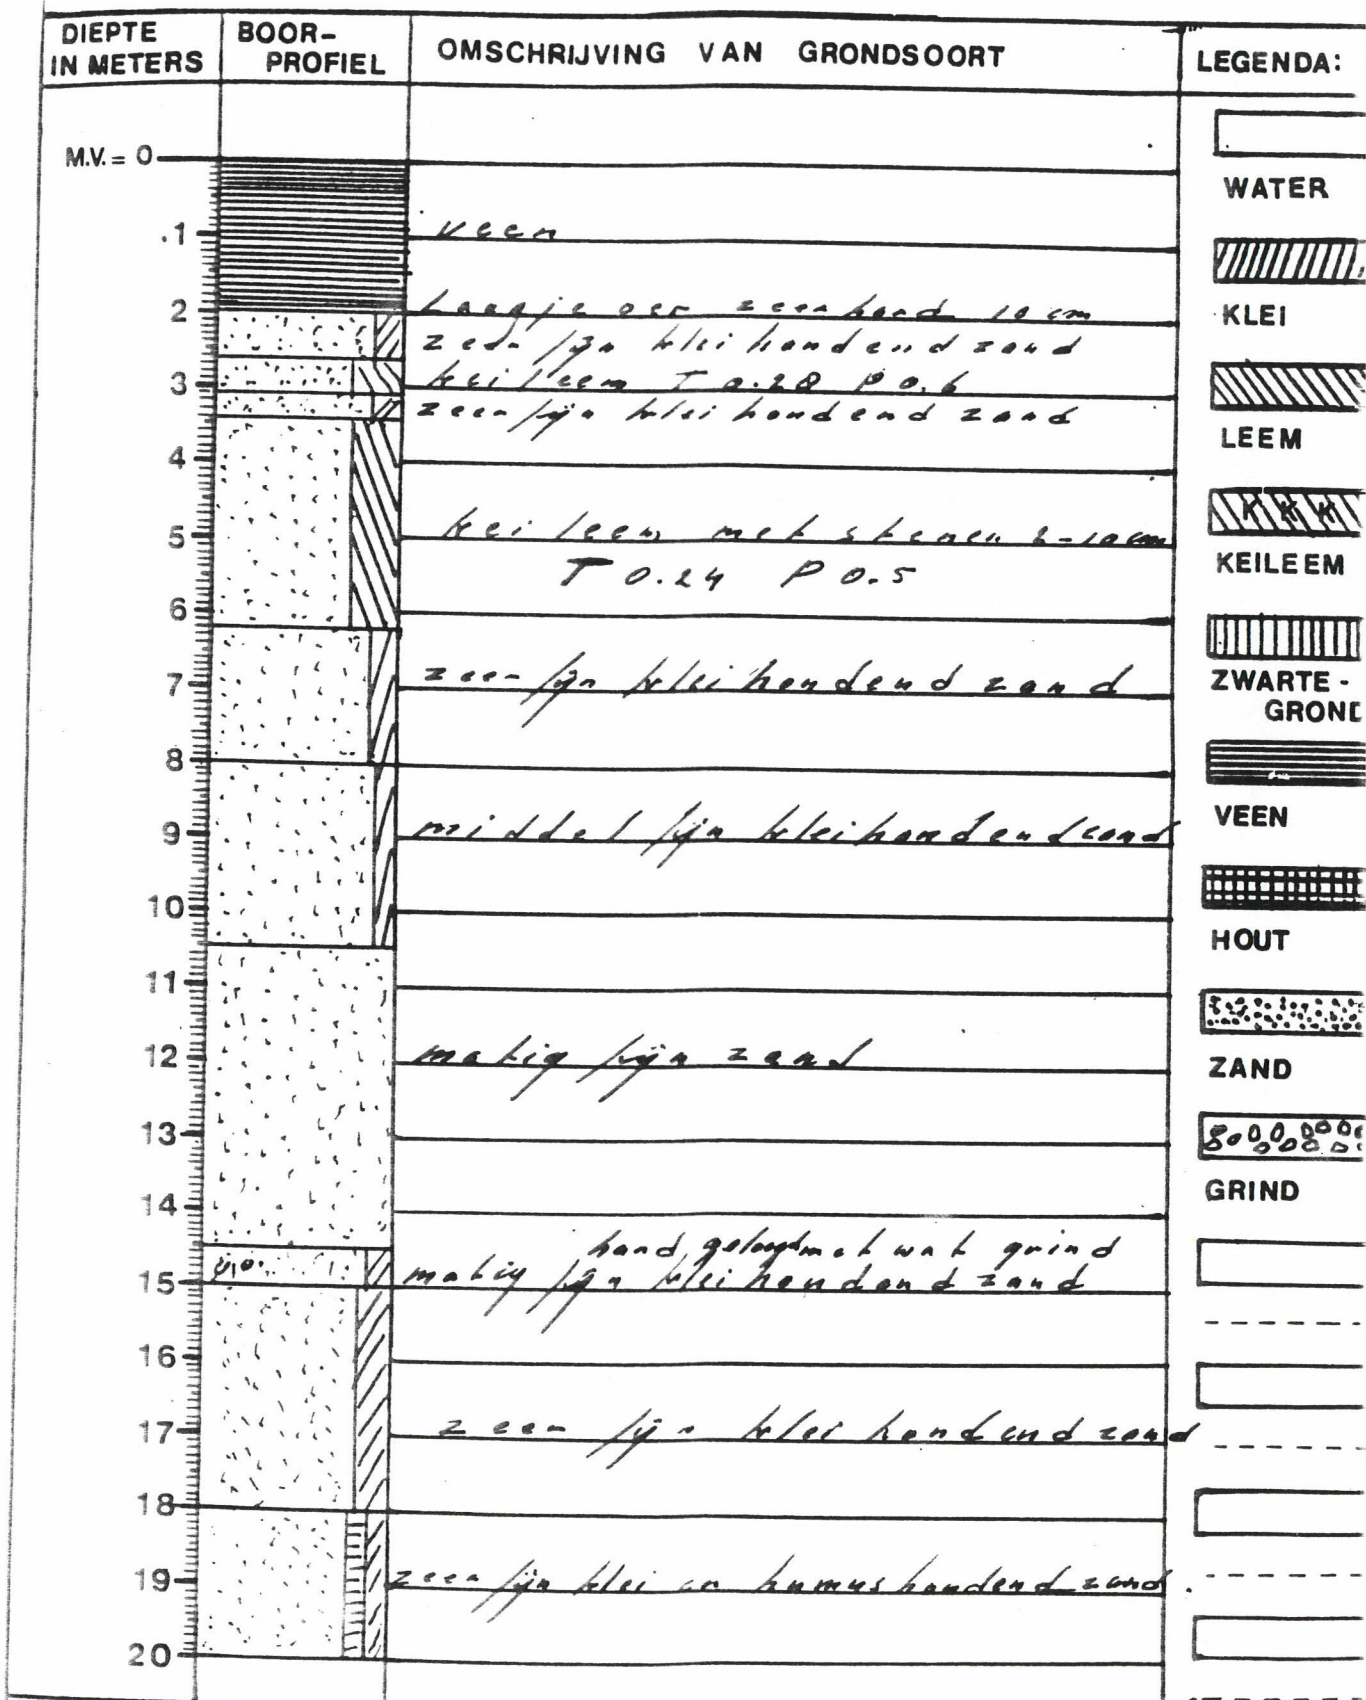 DIEPTE IN METERS
BOOR-PROFIEL
OMSCHRIJVING VAN GRONDSOORT
LEGENDA:
M.V. = 0
1
veen
2
Laagje oer zeer hard 10 cm
zeer fijn kleihoudend zand
3
keileem T 0.28 P 0.6
zeer fijn kleihoudend zand
4
5
keileem met stenen 2-10 cm
T 0.24 P 0.5
6
7
zeer fijn kleihoudend zand
8
9
middel fijn kleihoudend zand
10
11
12
matig fijn zand
13
14
hard, gelaagd met wat grind
15
matig fijn kleihoudend zand
16
17
zeer fijn kleihoudend zand
18
19
zeer fijn klei en humushoudend zand
20
WATER
KLEI
LEEM
K K K
KEILEEM
ZWARTE-
GROND
VEEN
HOUT
ZAND
GRIND